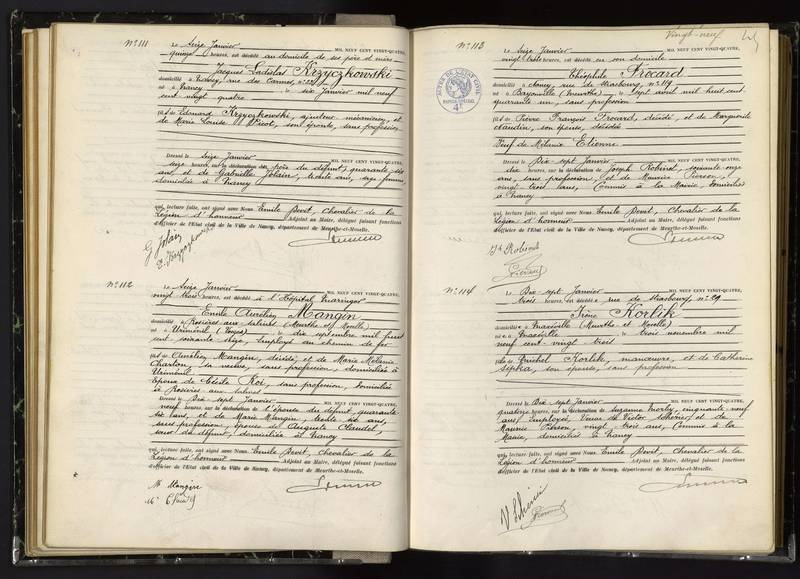 N° 111
Le Seize Janvier MIL NEUF CENT VINGT-QUATRE,
quinze heures, est décédé au domicile de ses père et mère
Jacques Ladislas Krzyczkowski
domicilié à Nancy, rue des Carmes, n° 22
né à Nancy le six Janvier mil neuf
cent vingt quatre
fils de Edouard Krzyczkowski, ajusteur mécanicien, et
de Marie Louise Picot, son épouse, sans profession
Dressé le Seize Janvier MIL NEUF CENT VINGT-QUATRE,
seize heures, sur la déclaration du père du défunt, quarante six
ans, et de Gabrielle Jolain, trente ans, sage femme
domiciliés à Nancy
qui, lecture faite, ont signé avec Nous Emile Devit, Chevalier de la
Légion d'honneur Adjoint au Maire, délégué faisant fonctions
d'officier de l'Etat civil de la Ville de Nancy, département de Meurthe-et-Moselle.
G Jolain
E. Krzyczkowski
N° 112
Le Seize Janvier MIL NEUF CENT VINGT-QUATRE,
vingt trois heures, est décédé à l'Hôpital Maringer
Emile Aurélien Mangin
domicilié à Rosières aux Salines (Meurthe et Moselle)
né à Uriménil (Vosges) le dix septembre mil huit
cent soixante seize, employé au chemin de fer
fils de Aurélien Mangin, décédé, et de Marie Mélanie
Charton, sa veuve, sans profession, domiciliée à
Uriménil
Epoux de Cécile Roi, sans profession, domiciliée
à Rosières aux Salines
Dressé le Dix sept Janvier MIL NEUF CENT VINGT-QUATRE,
neuf heures, sur la déclaration de l'épouse du défunt, quarante
six ans, et de Marie Mangin, trente six ans,
sans profession, épouse de Auguste Claudel,
sœur du défunt, domiciliée à Nancy
qui, lecture faite, ont signé avec Nous Emile Devit, Chevalier de la
Légion d'honneur Adjoint au Maire, délégué faisant fonctions
d'officier de l'Etat civil de la Ville de Nancy, département de Meurthe-et-Moselle.
M Mangin
Vingt-neuf
N° 113
Le Seize Janvier MIL NEUF CENT VINGT-QUATRE,
vingt trois heures, est décédé en son domicile
Théophile Trocard
domicilié à Nancy, rue de Strasbourg, n° 119
né à Bayonville (Meurthe) le Sept avril mil huit cent
quarante un, sans profession
fils de Pierre François Trocard, décédé, et de Marguerite
Claudin, son épouse, décédée
Veuf de Mélanie Etienne
Dressé le Dix sept Janvier MIL NEUF CENT VINGT-QUATRE,
dix heures, sur la déclaration de Joseph Robinot, soixante onze
ans, sans profession, et de Maurice Pierson,
vingt trois ans, Commis à la Mairie, domiciliés
à Nancy
qui, lecture faite, ont signé avec Nous Emile Devit, Chevalier de la
Légion d'honneur Adjoint au Maire, délégué faisant fonctions
d'officier de l'Etat civil de la Ville de Nancy, département de Meurthe-et-Moselle.
N° 114
Le Dix sept Janvier MIL NEUF CENT VINGT-QUATRE,
trois heures, est décédée rue de Strasbourg n° 29
Irène Korlik
domiciliée à Maxéville (Meurthe et Moselle)
née à Maxéville le trois novembre mil
neuf cent vingt trois
fille de Michel Korlik, manœuvre, et de Catherine
Sipka, son épouse, sans profession
Dressé le Dix sept Janvier MIL NEUF CENT VINGT-QUATRE,
quatorze heures, sur la déclaration de Suzanne Morly, cinquante neuf
ans, employée, Veuve de Victor Scherier, et de
Maurice Pierson, vingt trois ans, Commis à la
Mairie, domiciliés à Nancy
qui, lecture faite, ont signé avec Nous Emile Devit, Chevalier de la
Légion d'honneur Adjoint au Maire, délégué faisant fonctions
d'officier de l'Etat civil de la Ville de Nancy, département de Meurthe-et-Moselle.